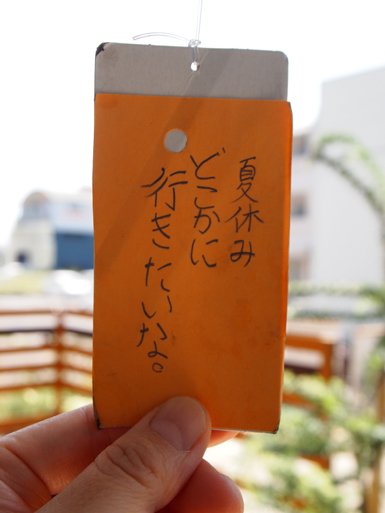 夏休み
どこかに
行きたいな。